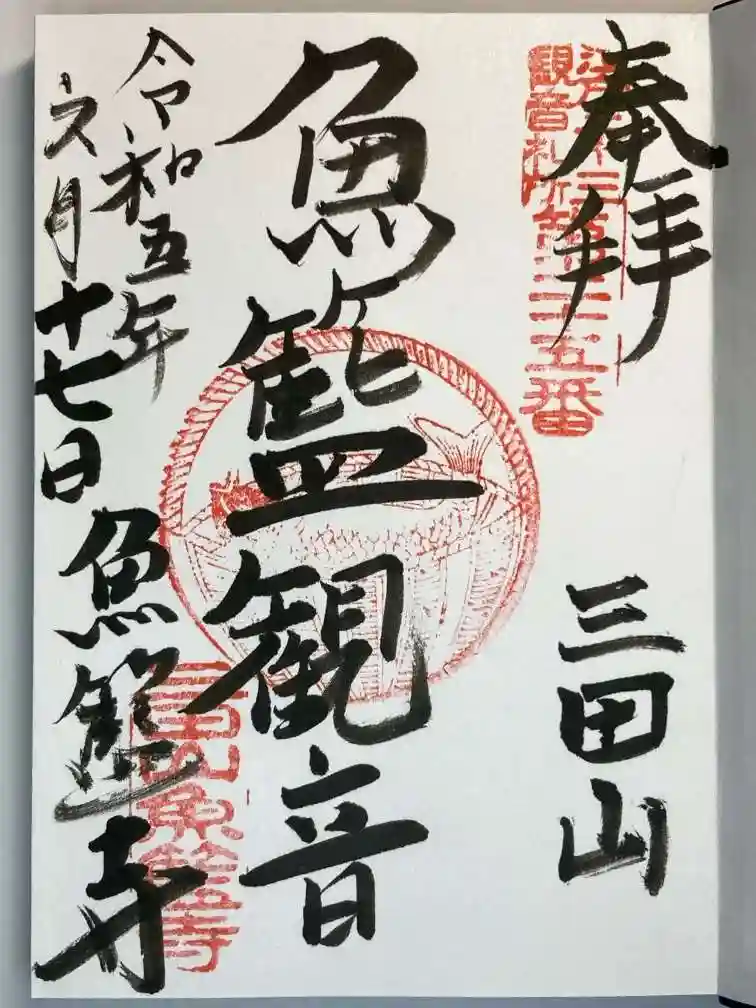 奉拝
三田山
江戸三十三
観音札所第二十五番
魚籃観音
令和五年
六月十七日
魚籃寺
三田山魚籃寺